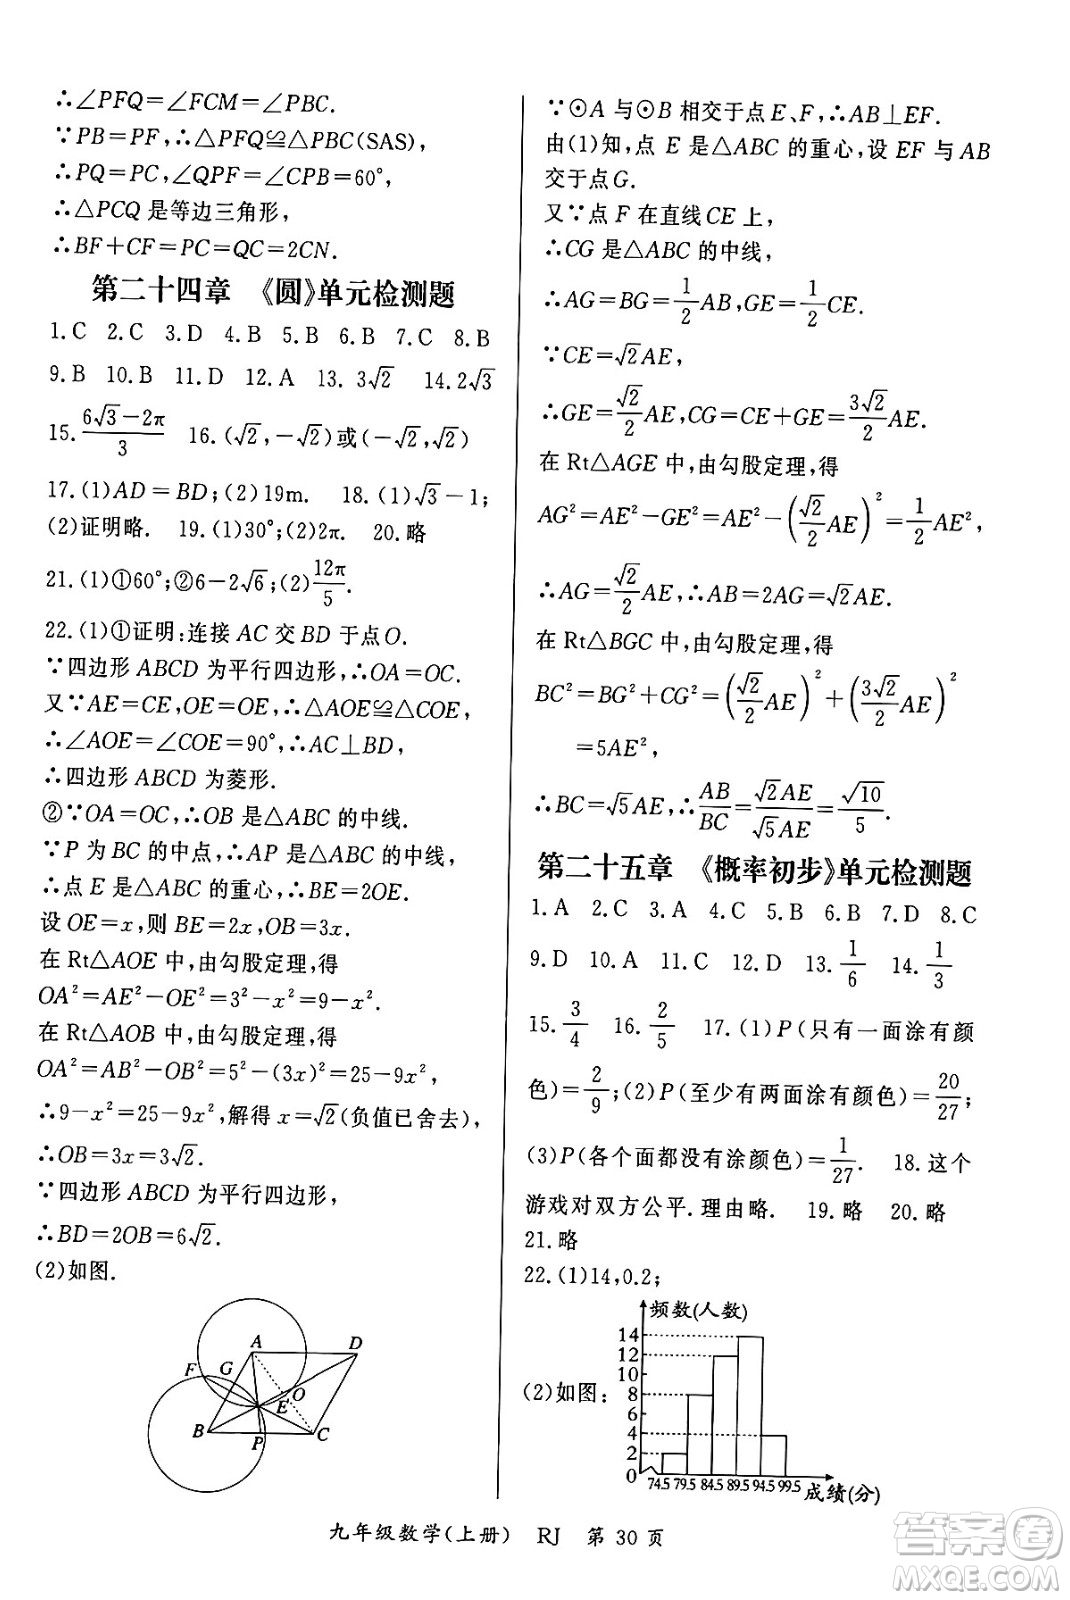 ∴∠PFQ=∠FCM=∠PBC.
∵PB=PF,∴△PFQ≌△PBC(SAS),
∴PQ=PC,∠QPF=∠CPB=60°,
∴△PCQ 是等边三角形,
∴BF+CF=PC=QC=2CN.
第二十四章 《圆》单元检测题
1.C 2.C 3.D 4.B 5.B 6.B 7.C 8.B
9.B 10.B 11.D 12.A 13. 3√2 14.2√3
15.(6√3-2π)/3 16.(√2,-√2)或(-√2,√2)
17.(1)AD=BD;(2)19m. 18.(1)√3-1;
(2)证明略. 19.(1)30°;(2)2π. 20.略
21.(1)①60°;②6-2√6;(2)12π/5.
22.(1)①证明:连接 AC 交 BD 于点O.
∵四边形 ABCD 为平行四边形,∴OA=OC.
又∵AE=CE,OE=OE,∴△AOE≌△COE,
∴∠AOE=∠COE=90°,∴AC⊥BD,
∴四边形 ABCD 为菱形.
②∵OA=OC,∴OB 是△ABC 的中线.
∵P 为 BC 的中点,∴AP 是△ABC 的中线,
∴点 E 是△ABC 的重心,∴BE=2OE.
设 OE=x,则 BE=2x,OB=3x.
在 Rt△AOE 中,由勾股定理,得
OA²=AE²-OE²=3²-x²=9-x²
在 Rt△AOB 中,由勾股定理,得
OA²=AB²-OB²=5²-(3x)²=25-9x²,
∴9-x²=25-9x²,解得 x=√2(负值已舍去),
∴OB=3x=3√2.
∵四边形 ABCD 为平行四边形,
∴BD=2OB=6√2.
(2)如图.
A
D
F
G
O
E
B
P
C
∵⊙A 与⊙B 相交于点 E、F,∴AB⊥EF.
由(1)知,点 E 是△ABC 的重心,设 EF 与 AB
交于点G.
又∵点 F 在直线 CE 上,
∴CG 是△ABC 的中线,
∴AG=BG=1/2AB,GE=1/2CE.
∵CE=√2AE,
∴GE=√2/2AE,CG=CE+GE=3√2/2AE.
在 Rt△AGE 中,由勾股定理,得
AG²=AE²-GE²=AE²-(√2/2AE)²=1/2AE²,
∴AG=√2/2AE,∴AB=2AG=√2AE.
在 Rt△BGC 中,由勾股定理,得
BC²=BG²+CG²=(√2/2AE)²+(3√2/2AE)²
=5AE²,
∴BC=√5AE,∴AB/BC=√2AE/√5AE=√10/5.
第二十五章 《概率初步》单元检测题
1.A 2.C 3.A 4.C 5.B 6.B 7.D 8.C
9.D 10.A 11.C 12.D 13.1/6 14.1/3
15.3/4 16.2/5 17.(1)P(只有一面涂有颜
色)=2/9;(2)P(至少有两面涂有颜色)=20/27;
(3)P(各个面都没有涂颜色)=1/27. 18.这个
游戏对双方公平.理由略. 19.略 20.略
21.略
22.(1)14,0.2;
(2)如图:
频数(人数)
14
12
10
8
6
4
2
0
74.5 79.5 84.5 89.5 94.5 99.5
成绩(分)
九年级数学(上册) RJ 第 30 页
作业精灵
MXQE.COM